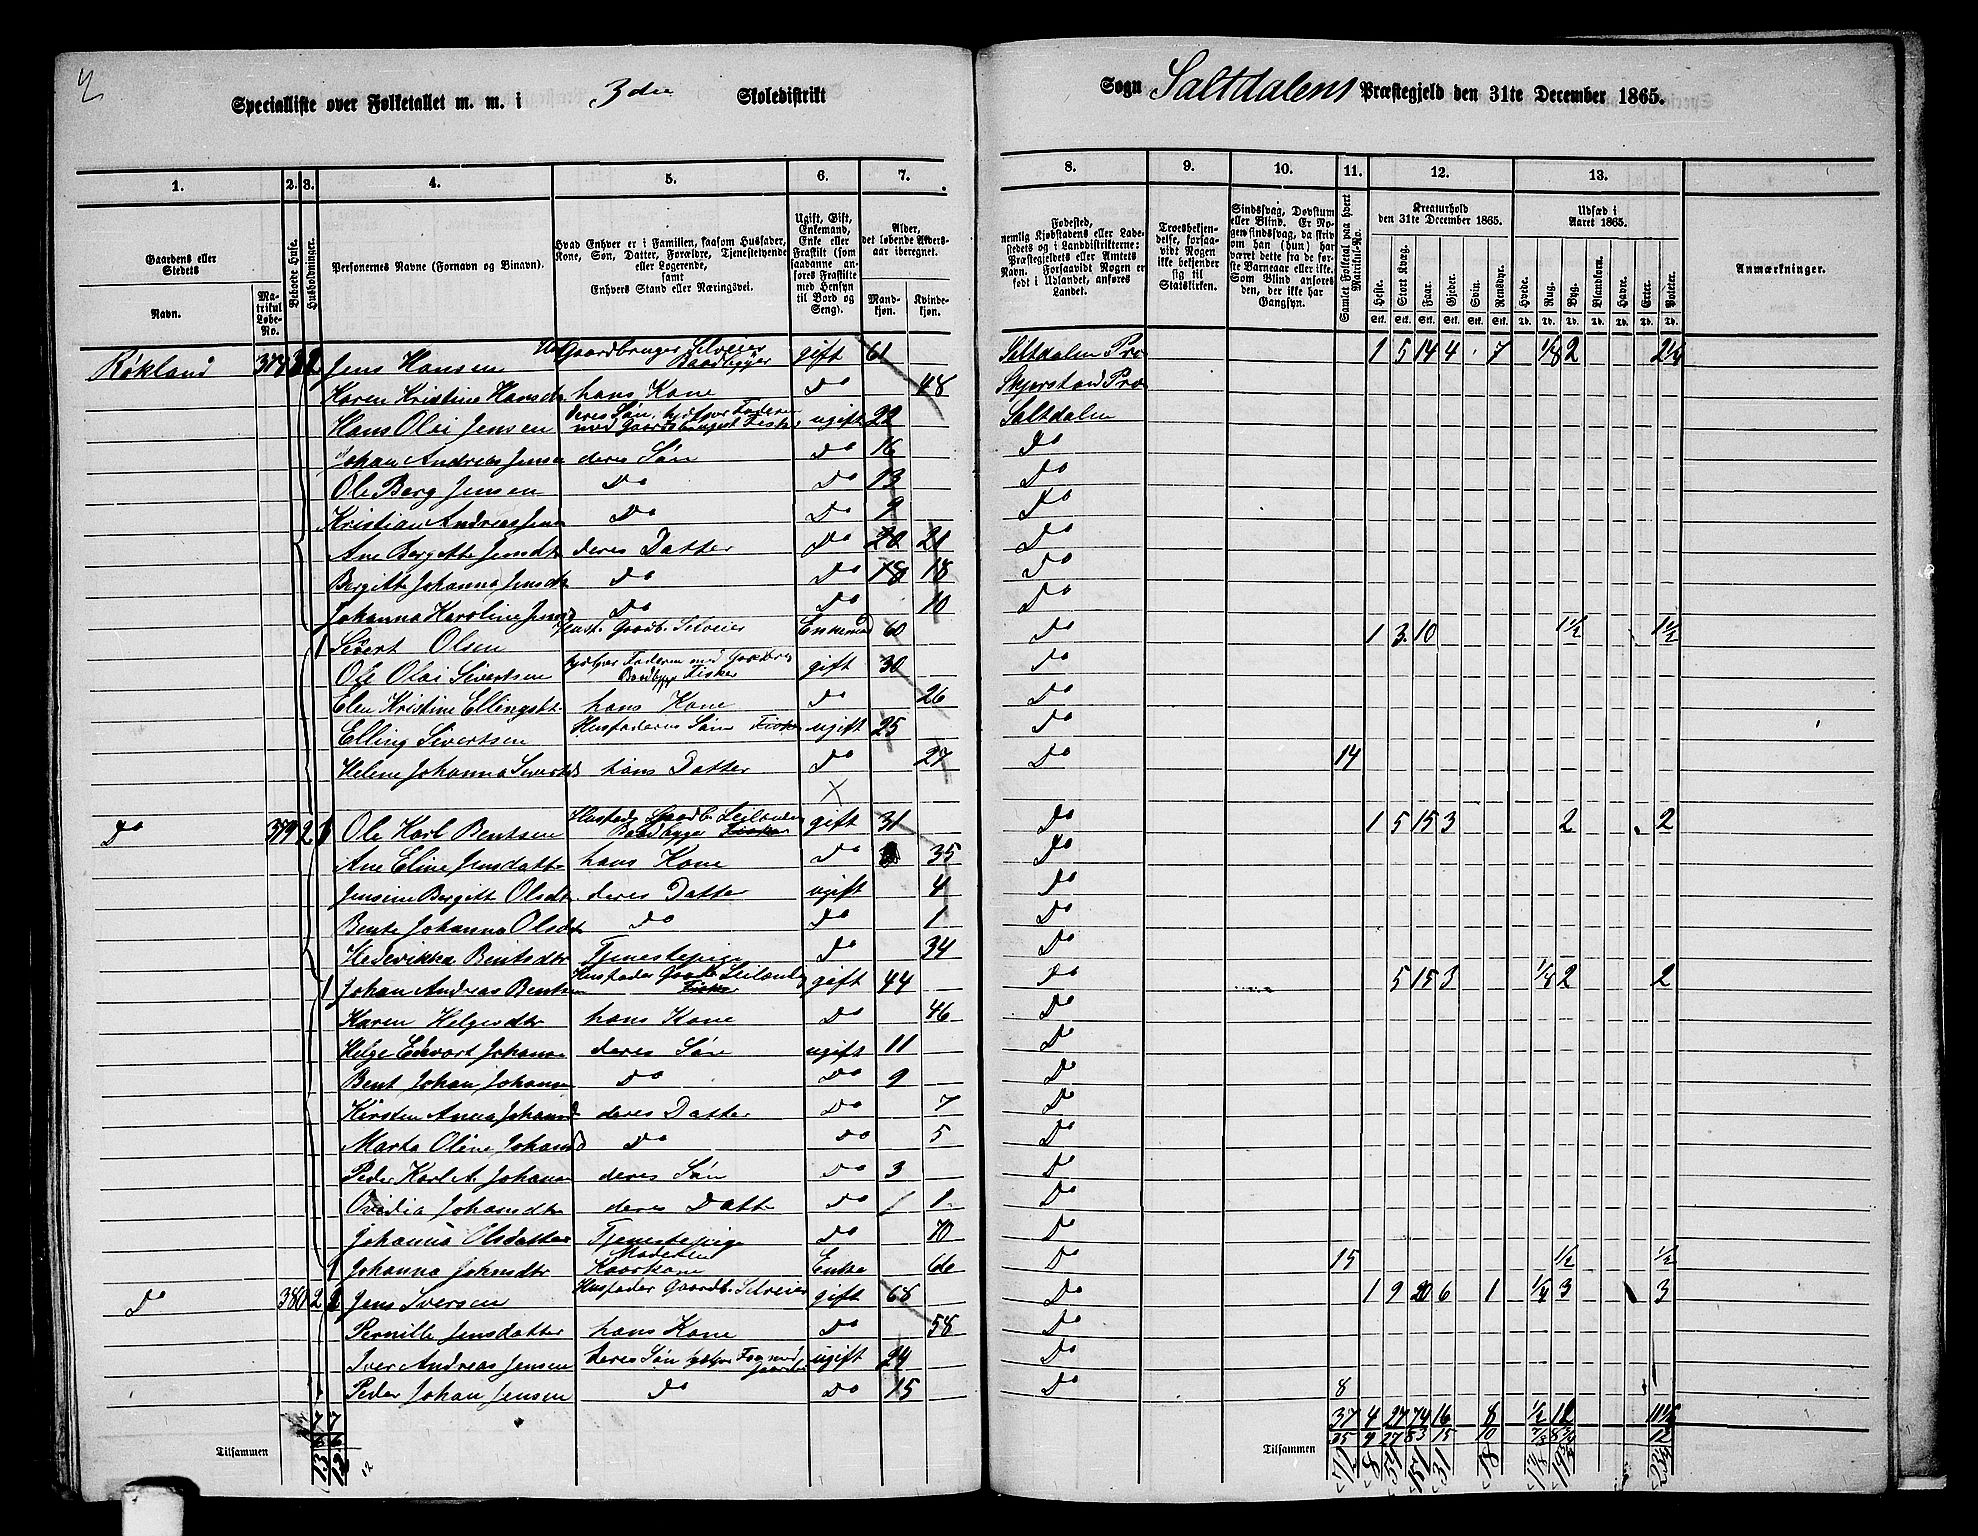 2
Specialliste over Folketallet m. m. i 3die Skoledistrikt
Sogn Saltdalens Præstegjeld den 31te December 1865.
1. 2. 3. 4. 5. 6. 7. 8. 9. 10. 11. 12. 13.
Gaardens eller Stedets
Navn.
Matrikul Løbe-No.
Beboede Huse.
Husholdninger.
Personernes Navne (Fornavn og Binavn).
Hvad Enhver er i Familien, saasom Husfader, Kone, Søn, Datter, Forældre, Tjenestetyende eller Logerende, samt Enhvers Stand eller Næringsvei.
Ugift, Gift, Enkemand, Enke eller Fraskilt (som saadanne anføres Fraskilte med Hensyn til Bord og Seng).
Alder, det løbende Aldersaar iberegnet.
Mandkjøn.
Kvindekjøn.
Fødested, nemlig Kjøbstadens eller Ladestedets og i Landdistrikterne: Præstegjeldets eller Amtets Navn. Forsaavidt Nogen er født i Udlandet, anføres Landet.
Troesbekjendelse, forsaavidt Nogen ikke bekjender sig til Statskirken.
Sindssvag, Døvstum eller Blind. Er Nogen sindssvag, da skriv om han (hun) har været dette fra de første Barneaar eller ikke. Som Blind ansøres den, der ikke har Gangsyn.
Samlet Folketal paa hvert Matrikul-No.
Kreaturhold den 31te December 1865.
Heste. Stort Kvæg. Faar. Gjeder. Svin. Rensdyr.
Udsæd i Aaret 1865.
Hvede. Rug. Byg. Blandkorn. Havre. Erter. Poteter.
Anmærkninger.
Røkland 379 Jens Hansen Gaardbruger Selveier Baadbygger gift 61 Saltdalen Præ 1 5 14 4 7 1/8 2 2 1/4
Karen Kristine Hansdr hans Kone Do 48 Skjerstad Præ
Hans Olai Jensen deres Søn, hjelper Faderen med Gaardsbruget Fisker ugift 22 Saltdalen
Johan Andreas Jensen deres Søn Do 16 Do
Ole Berg Jensen Do Do 13 Do
Kristian Andreas Jens Do Do 9 Do
Ane Bergette Jensdtr deres Datter Do 20 21 Do
Bergitte Johanna Jensdtr Do Do 18 18 Do
Johanna Karoline Jensd Do Do 10 Do
1 Sivert Olsen Husf. Gaardb. Selveier Enkemand 60 Do 1 3 10 1 1/2 1 1/2
Ole Olai Sivertsen hjelper Faderen med Gaardbrug Baadbygg Fisker gift 30 Do
Elen Kristine Ellingsdtr. hans Kone Do 26 Do
Elling Sivertsen Husfaderes Søn Fisker ugift 25 Do
Helene Johanna Sivertsd hans Datter Do 27 Do 14
Do 379 2 Ole Karl Bentsen Husfader Gaardb. Leilænding Baadbygger Fisker gift 31 Do 1 5 15 3 2 2
Ane Eline Jensdatter hans Kone Do 35 Do
Jensine Bergitt Olsdt. deres Datter ugift 4 Do
Bente Johanna Olsdtr Do Do 1 Do
Hedevikka Bentsdtr Tjenestepige Do 34 Do
1 Johan Andreas Bentsen Husfader Gaardb. Leilænding Fisker gift 44 Do 5 15 3 1/4 2 2
Karen Helgesdtr hans Kone Do 46 Do
Helge Edevart Johans deres Søn ugift 11 Do
Bent Johan Johans Do Do 9 Do
Kirsten Anna Johansd deres Datter Do 7 Do
Marta Oline Johansd Do Do 5 Do
Peder Karl A. Johans deres Søn Do 3 Do
Ovidia Johansdtr deres Datt Do 1 Do
Johanna Olsdatter Tjenestepige Do 70 Do
1 Johanna Johnsdtr Kaarkone Enke 66 Do 15 1/2 1/2
Do 380 2 Jens Iversen Husfader Gaardb. Selveier gift 68 Do 1 9 20 6 1 1/4 3 3
Pernille Jensdatter hans Kone Do 58 Do
Iver Andreas Jensen deres Søn ugift 24 Do
Peder Johan Jensen Do Do 15 Do 8
7 7 37 4 27 74 16 8 1/2 12
6 6 35 9 27 83 15 10 7/8 12
Tilsammen 13 12 12 Tilsammen 51 31 18